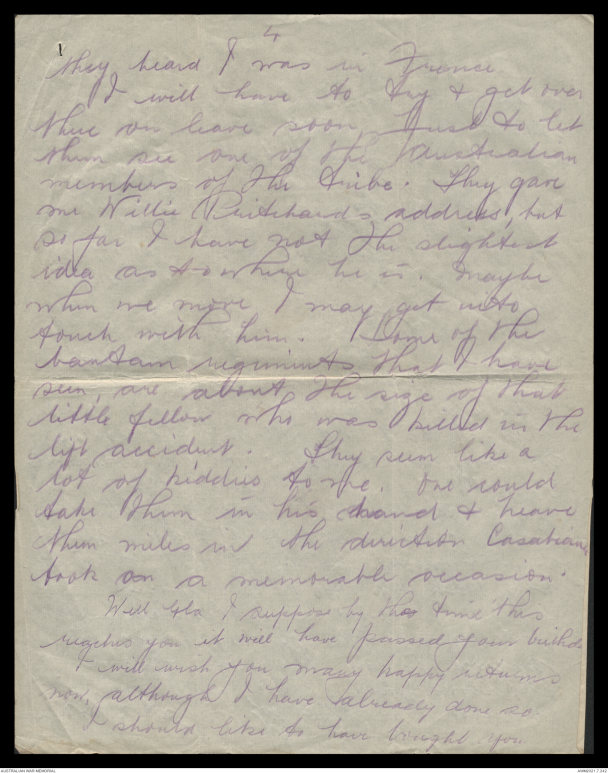 4
they heard I was in France
I will have to try & get over
there on leave soon, Just to let
them see one of the Australian
members of the tribe. They gave
me Willie Pritchards address, but
so far I have not the slightest
idea as to where he is. Maybe
when we move I may get into
touch with him. Some of the
bantam regiments that I have
seen, are about the size of that
little fellow who was killed in the
lift accident. They seem like a
lot of kiddies to me. One could
take them in his hand & heave
them miles in the direction Casabianca
took on a memorable occasion.
Well Gla I suppose by the time this
reaches you it will have passed your birthd
I will wish you many happy returns
now, although I have already done so.
I should like to have bought you
AUSTRALIAN WAR MEMORIAL